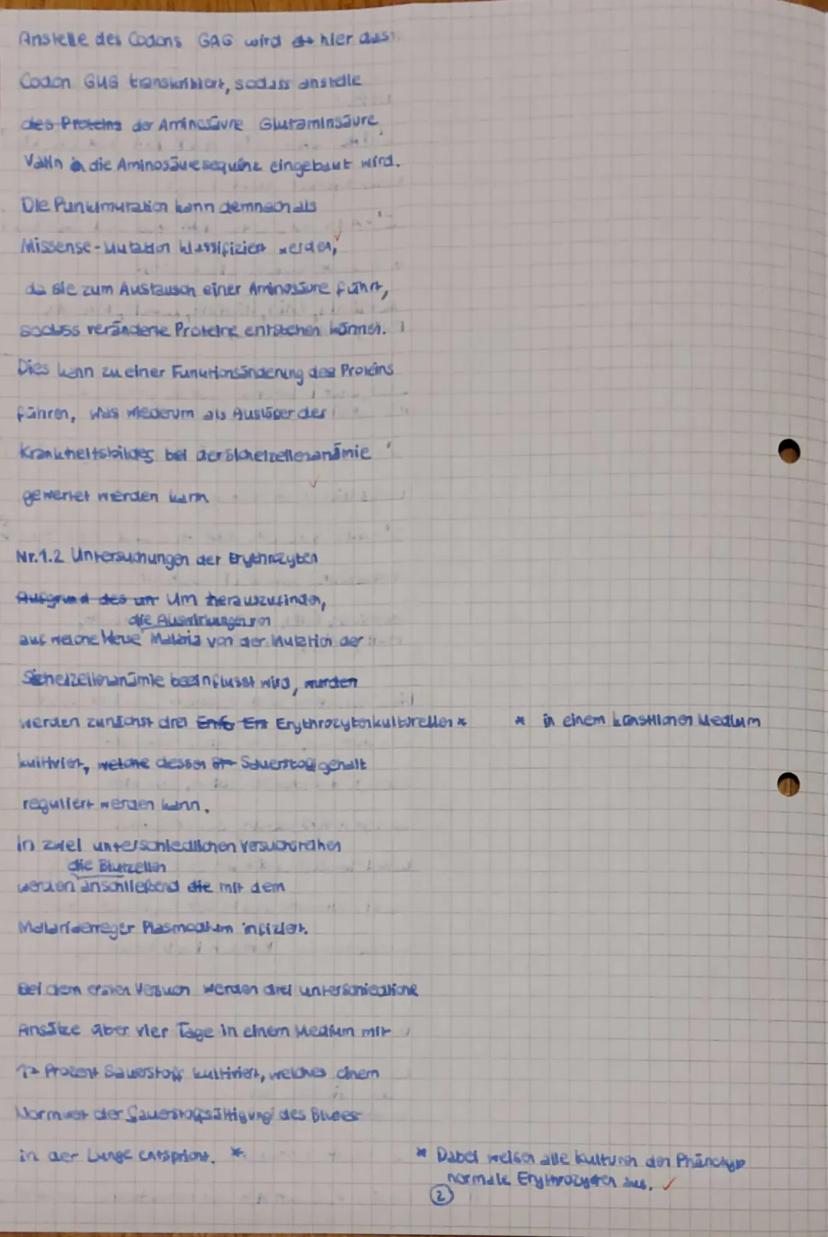 Anstelle des Codons GAG wird hier das
Codon GUG transkribiert, sodass anstelle
des Proteins der Aminosäure Glutaminsäure
Valin in die Aminosäuresequenz eingebaut wird.
Die Punktmutation kann demnach als
Missense-Mutation klassifiziert werden,
da sie zum Austausch einer Aminosäure führt,
sodass veränderte Proteine entstehen können.
Dies kann zu einer Funktionsänderung des Proteins
führen, was wiederum als Auslöser des
Krankheitsbildes bei der Sichelzellenanämie
gewertet werden kann
Nr.1.2 Untersuchungen der Erythrozyten
Aufgrund des Um herauszufinden,
die Auswirkungen von
auf welche Weise Malaria von der Mutation der
Sichelzellenanämie beeinflusst wird, wurden
werden zunächst drei Erythrozytenkulturen *
* in einem künstlichen Medium
kultiviert, welche dessen Sauerstoffgehalt
reguliert werden kann.
In zwei unterschiedlichen Versuchsreihen
die Blutzellen
werden anschließend die mit dem
Malariaerreger Plasmodium infiziert.
Bei dem ersten Versuch werden drei unterschiedliche
Ansätze über vier Tage in einem Medium mit
17 Prozent Sauerstoff kultiviert, welches einem
Normwert der Sauerstoffsättigung des Blutes
in der Lunge entspricht. *
* Dabei weisen alle Kulturen den Phänotyp
normale Erythrozyten aus.
2